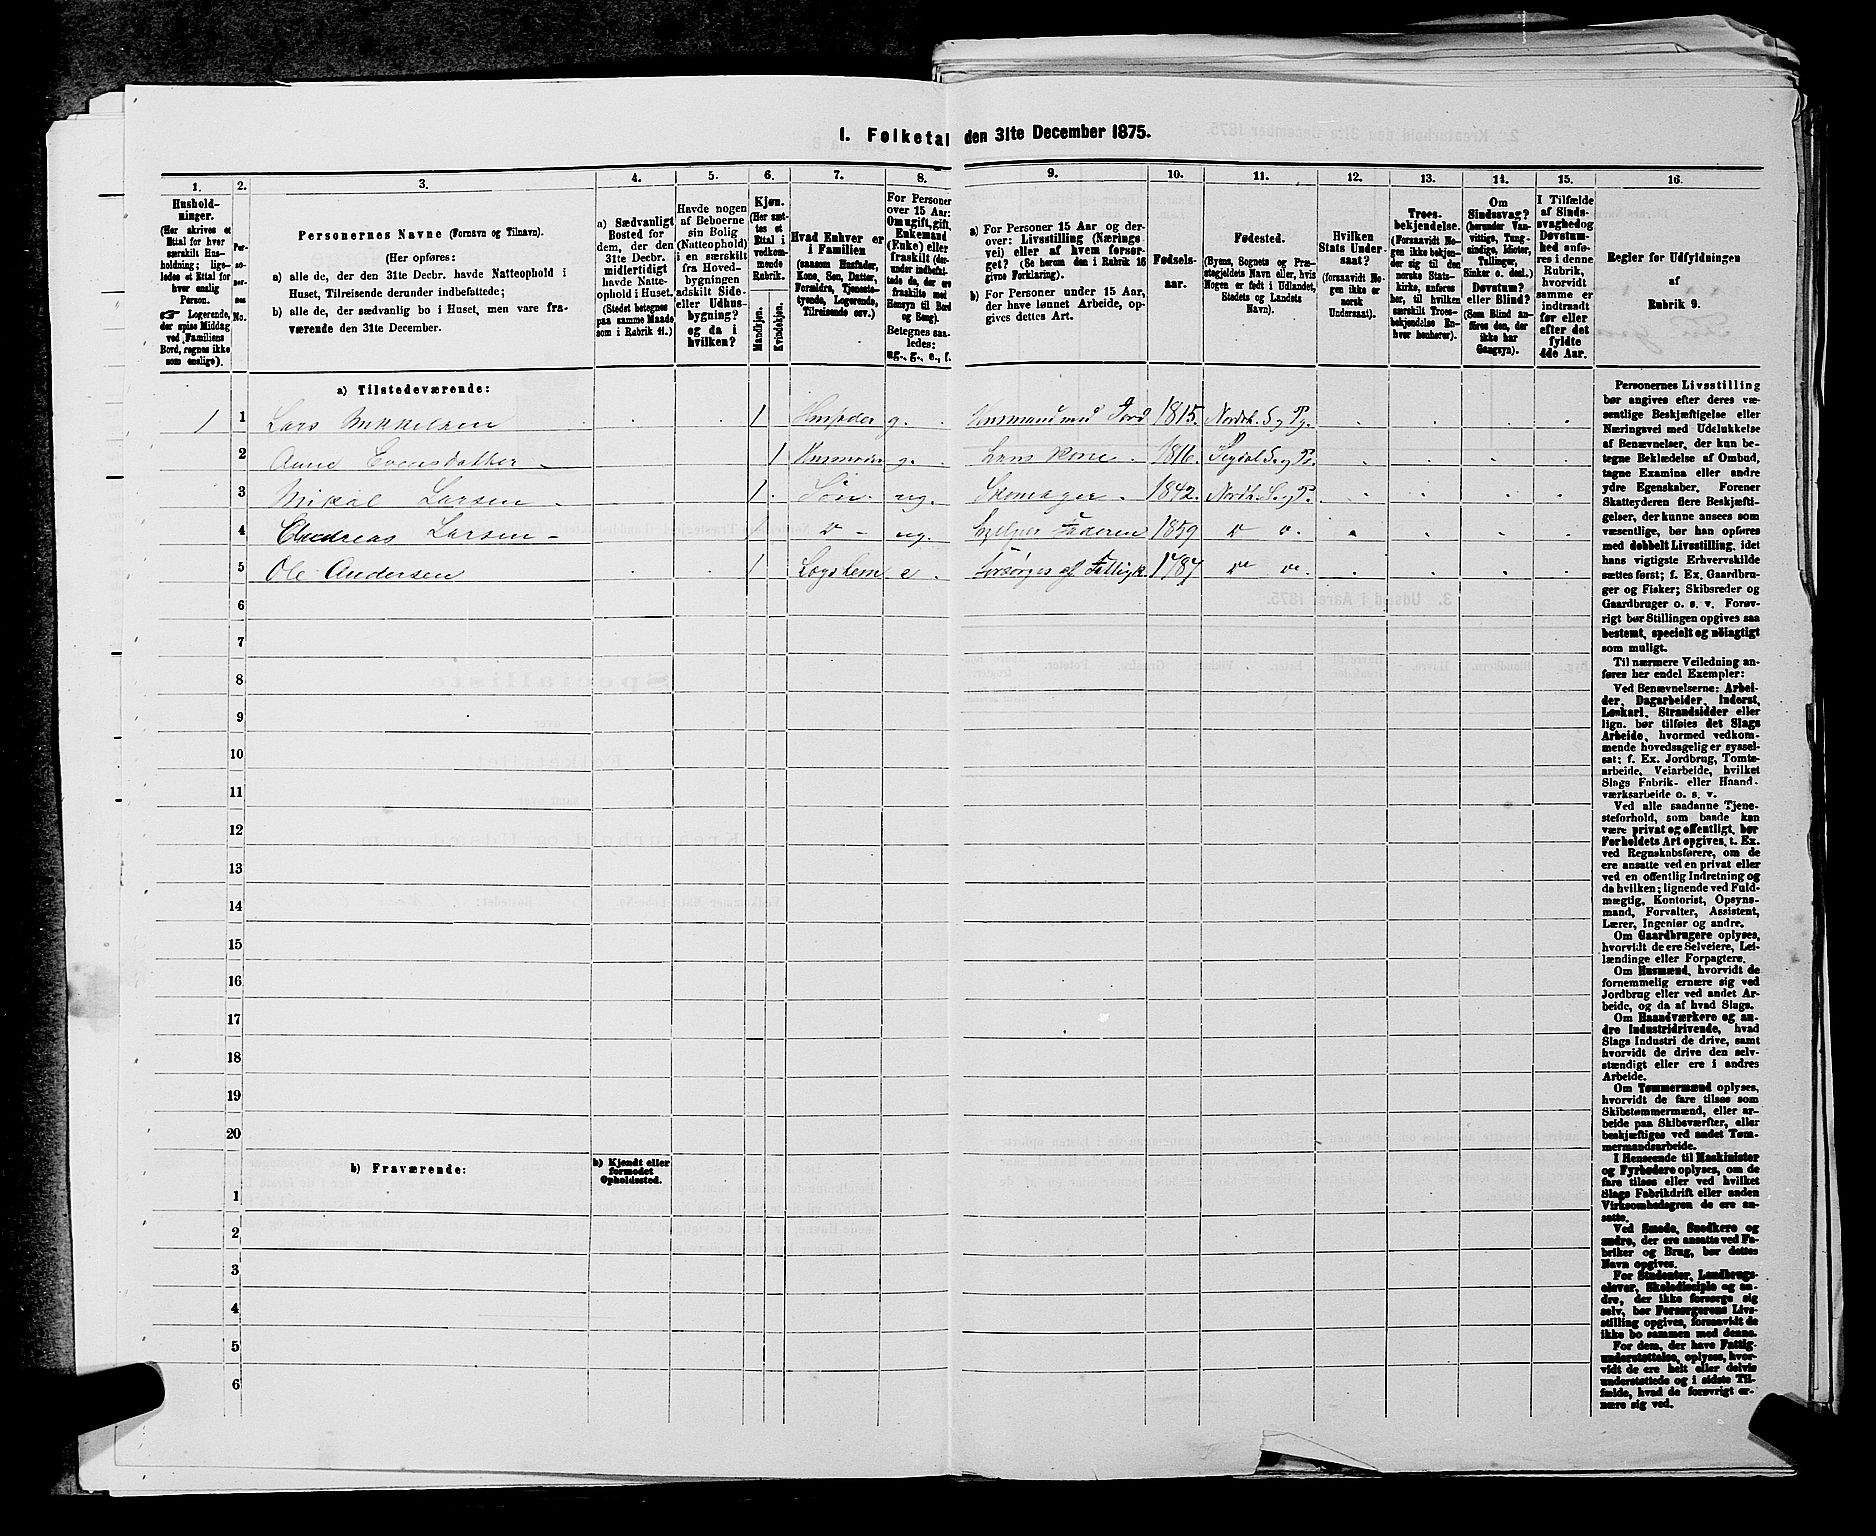 I. Folketal den 31te December 1875.
1. 2. 3. 4. 5. 6. 7. 8. 9. 10. 11. 12. 13. 14. 15. 16.
Hushold-
ninger.
(Her skrives et
Ettal for hver
særskilt Hus-
holdning; lige-
ledes et Ettal for
hver enslig
Person.
☞ Logerende,
der spise Middag
ved Familiens
Bord, regnes ikke
som enslige).
Per-
so-
ner-
nes
No.
Personernes Navne (Fornavn og Tilnavn).
(Her opføres:
a) alle de, der den 31te Decbr. havde Natteophold i
Huset, Tilreisende derunder indbefattede;
b) alle de, der sædvanlig bo i Huset, men vare fra-
værende den 31te December.
a) Sædvanligt
Bosted for
dem, der den
31te Decbr.
midlertidigt
havde Natte-
ophold i Huset.
(Stedet betegnes
paa samme Maade
som i Rubrik 11.)
Havde nogen
af Beboerne
sin Bolig
(Natteophold)
i en særskilt
fra Hoved-
bygningen
adskilt Side-
eller Udhus-
bygning?
og da i
hvilken?
Kjøn.
(Her sæt-
tes et
Ettal i
vedkom-
mende
Rubrik.
Mandkjøn.
Kvindekjøn.
Hvad Enhver er
i Familien
(saasom Husfader,
Kone, Søn, Datter,
Forældre, Tjeneste-
tyende, Logerende,
Tilreisende osv.)
For Personer
over 15 Aar:
Om ugift, gift,
Enkemand
(Enke) eller
fraskilt (der-
under indbefat-
tede de, der ere
fraskilte med
Hensyn til Bord
og Seng).
Betegnes saa-
ledes:
ug., g., e., f.
a) For Personer 15 Aar og der-
over: Livsstilling (Nærings-
vei) eller af hvem forsør-
get? (Se herom den i Rubrik 16
givne Forklaring).
b) For Personer under 15 Aar,
der have lønnet Arbeide, op-
gives dettes Art.
Fødsels-
aar.
Fødested.
(Byens, Sognets og Præ-
stegjeldets Navn eller, hvis
Nogen er født i Udlandet,
Stedets og Landets
Navn).
Hvilken
Stats Under-
saat?
(forsaavidt No-
gen ikke er
norsk
Undersaat).
Troes-
bekjendelse.
(Forsaavidt No-
gen ikke bekjen-
der sig til den
norske Stats-
kirke, anføres
her, til hvilken
særskilt Troes-
bekjendelse En-
hver henhører).
Om
Sindssvag?
(herunder Van-
vittige, Tung-
sindige, Idioter,
Tullinger,
Sinker o. desl.)
Døvstum?
eller Blind?
(Som Blind an-
føres den, der
ikke har
Gangsyn).
I Tilfælde
af Sinds-
svaghed og
Døvstum-
hed anfø-
res i denne
Rubrik,
hvorvidt
samme er
indtraadt
før eller
efter det
fyldte
4de Aar.
Regler for Udfyldningen
af
Rubrik 9.
a) Tilstedeværende:
1 1 Lars Mikkelsen 1 Husfader g. Husmand med Jord 1815. Nordh. S. og Pg.
2 Anne Evensdatter 1 Husmoder g. hans Kone 1816. Sigdal S. og P.
3 Mikal Larsen 1 Søn ug. Skomager 1842. Nordh. S. og P.
4 Andreas Larsen 1 ug. hjelper Faderen 1859
5 Ole Andersen 1 e. forsørges af Fattigk. 1787
6
7
8
9
10
11
12
13
14
15
16
17
18
19
20
b) Fraværende:
b) Kjendt eller
formodet
Opholdssted.
1
2
3
4
5
6
Personernes Livsstilling
bør angives efter deres væ-
sentlige Beskjæftigelse eller
Næringsvei med Udelukkelse
af Benævnelser, der kun be-
tegne Beklædelse af Ombud,
tagne Examina eller andre
ydre Egenskaber. Forener
Skatteyderen flere Beskjæfti-
gelser, der kunne ansees som
væsentlige, bør han opføres
med dobbelt Livsstilling, idet
hans vigtigste Erhvervskilde
sættes først; f. Ex. Gaardbru-
ger og Fisker; Skibsreder og
Gaardbruger o. s. v. Forøv-
rigt bør Stillingen opgives saa
bestemt, specielt og nøiagtigt
som muligt.
Til nærmere Veiledning an-
føres her endel Exempler:
Ved Benævnelserne: Arbei-
der, Dagarbeider, Inderst,
Løskarl, Strandsidder eller
lign. bør tilføies det Slags
Arbeide, hvormed vedkom-
mende hovedsagelig er syssel-
sat; f. Ex. Jordbrug, Tomte-
arbeide, Veiarbeide, hvilket
Slags Fabrik- eller Haand-
værksarbeide o. s. v.
Ved alle saadanne Tjene-
steforhold, som baade kan
være privat og offentligt, bør
Forholdets Art opgives, t. Ex.
ved Regnskabsførere, om de
ere ansatte ved en privat eller
ved en offentlig Indretning og
da hvilken; lignende ved Fuld-
mægtig, Kontorist, Opsyns-
mand, Forvalter, Assistent,
Lærer, Ingeniør og andre.
Om Gaardbrugere oplyses,
hvorvidt de ere Selveiere, Lei-
lændinge eller Forpagtere.
Om Husmænd, hvorvidt de
fornemmelig ernære sig ved
Jordbrug eller ved andet Ar-
beide, og da af hvad Slags.
Om Haandværkere og an-
dre Industridrivende, hvad
Slags Industri de drive, samt
hvorvidt de drive den selv-
stændigt eller ere i andres
Arbeide.
Om Tømmermænd oplyses,
hvorvidt de fare tilsøs som
Skibstømmermænd, eller ar-
beide paa Skibsværfter, eller
beskjæftiges ved andet Tøm-
mermandsarbeide.
I Henseende til Maskinister
og Fyrbødere oplyses, om de
fare tilsøs eller ved hvilket
Slags Fabrikdrift eller anden
Virksomhedsgren de ere an-
satte.
Ved Smede, Snedkere og
andre, der ere ansatte ved Fa-
briker og Brug, bør dettes
Navn opgives.
For Studenter, Landbrugs-
elever, Skoledisciple og an-
dre, der ikke forsørge sig
selv, bør Forsørgerens Livs-
stilling opgives, forsaavidt de
ikke bo sammen med denne.
For dem, der have Fattig-
understøttelse, oplyses, hvor-
vidt de ere helt eller delvis
understøttede og i sidste Til-
fælde, hvad de forøvrigt er-
nære sig ved.